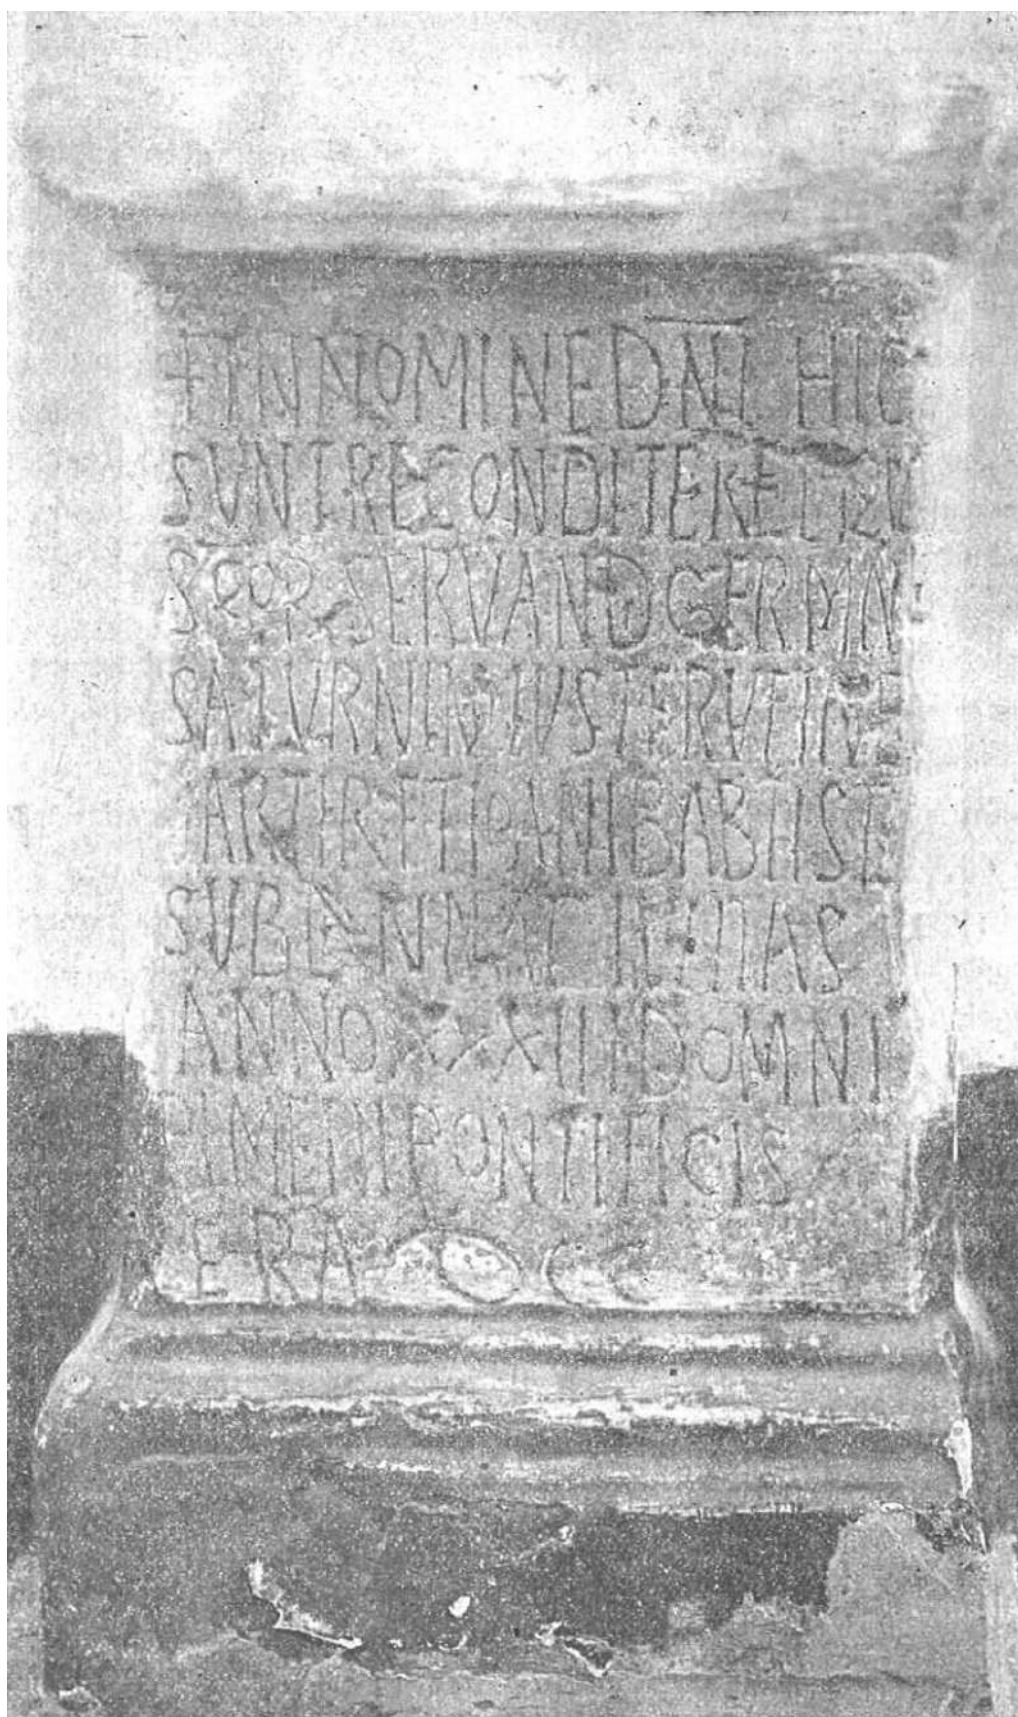 + IN NOMINE DNI HIC
SUNT RECONDITE RELIQU
SCOR SERVAND GERMNI
SATURNIN IUSTE RUFINE
MARTIR ET IOANNI BABTISTE
SUB D
ANNO XXXIII DOMNI
PIMENI PONTIFICIS
ERA DCC